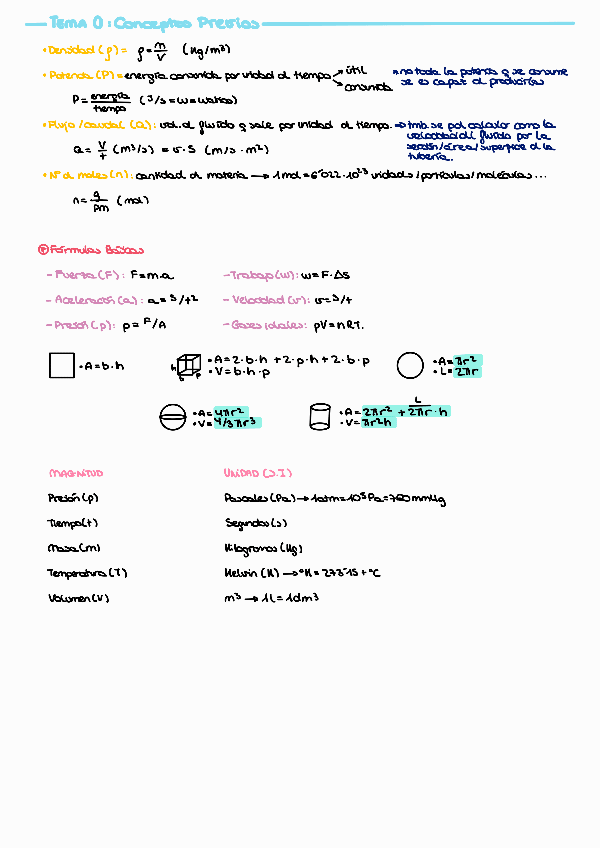 TEMA 0: Conceptos Previos
• Densidad (ρ) = ρ = m/V (Kg/m³)
• Potencia (P) = energía consumida por unidad d tiempo → útil → no toda la potencia q se consume
→ consumida se es capaz d producirla
P = energía/tiempo (J/s = w = watios)
• Flujo/caudal (Q): vol. d fluido q sale por unidad d tiempo. → tmb. se pod calcular como la
velocidad d fluido por la
Q = V/t (m³/s) = v·S (m/s · m²) sección/área/superficie d la
tubería.
• Nº d moles (n): cantidad d materia → 1 mol = 6'022·10²³ unidades/partículas/moléculas...
n = g/PM (mol)
Fórmulas Básicas
- Fuerza (F): F = m·a - Trabajo (w): w = F·ΔS
- Aceleración (a): a = S/t² - Velocidad (v): v = S/t
- Presión (p): p = F/A - Gases ideales: pV = nRT.
• A = b·h • A = 2·b·h + 2·p·h + 2·b·p • A = πr²
h • V = b·h·p • L = 2πr
b p
L
• A = 4πr² • A = 2πr² + 2πr·h
• V = 4/3πr³ • V = πr²h
MAGNITUD UNIDAD (S.I)
Presión (p) Pascales (Pa) → 1atm = 10⁵ Pa = 760 mmHg
Tiempo (t) Segundos (s)
Masa (m) Kilogramos (Kg)
Temperatura (T) Kelvin (K) → ºK = 273'15 + ºC
Volumen (V) m³ → 1L = 1dm³